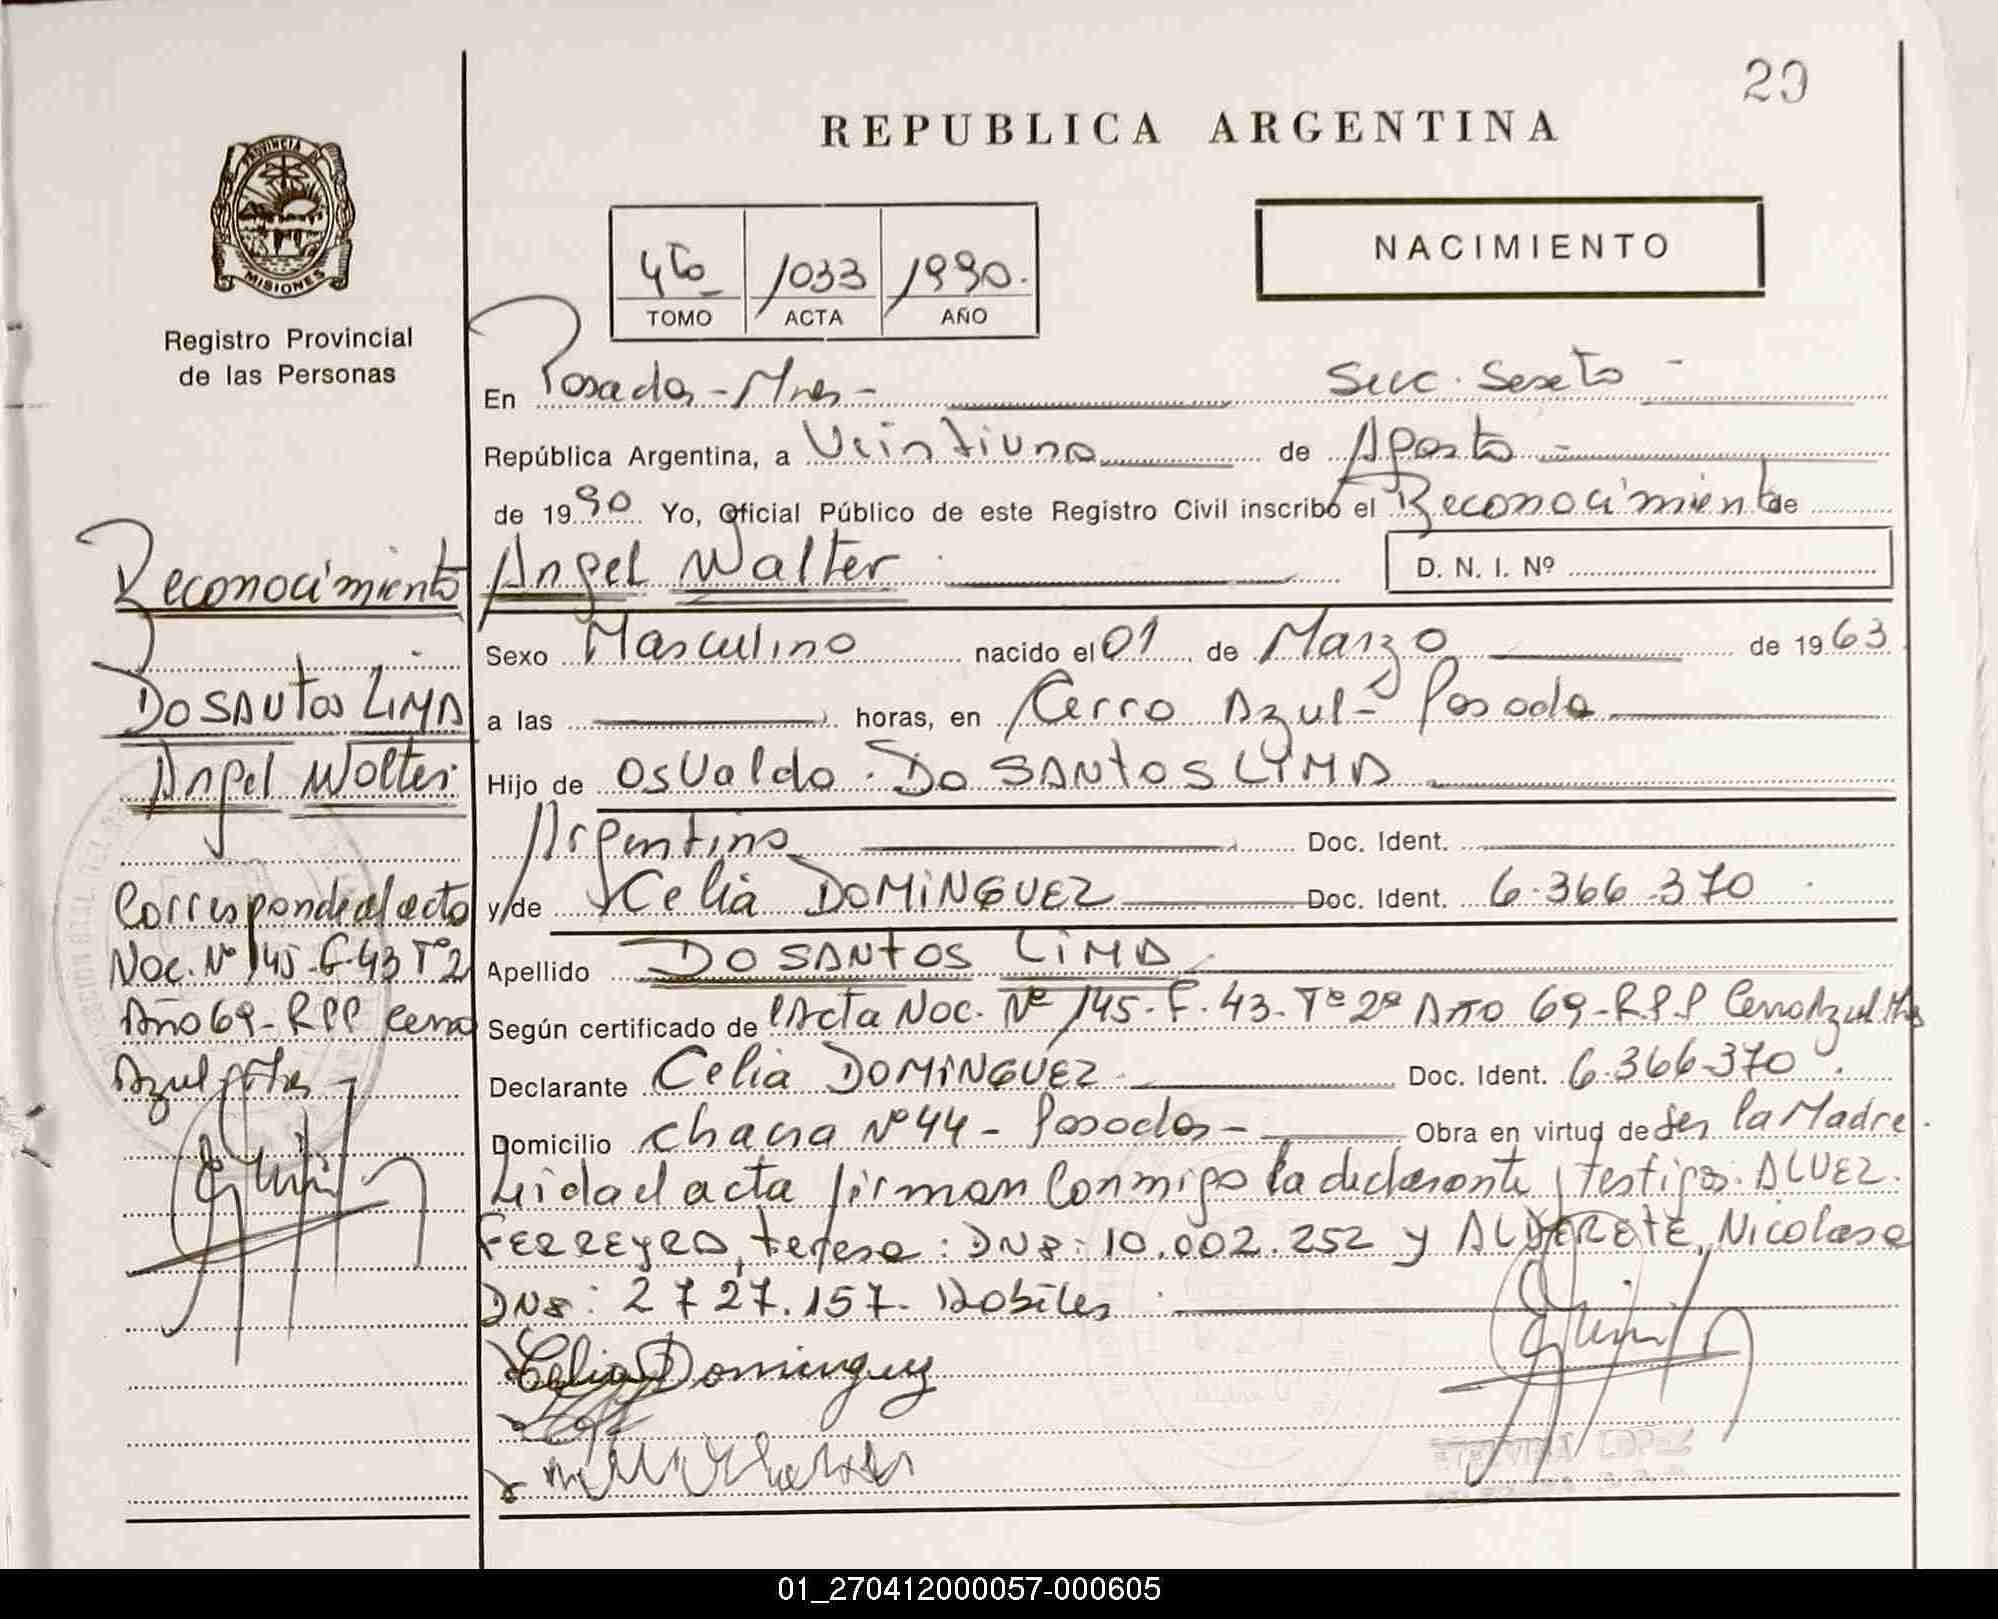 29
REPUBLICA ARGENTINA
PROVINCIA DE
MISIONES
Registro Provincial
de las Personas
4to 1033 1990.
TOMO ACTA AÑO
NACIMIENTO
En Posadas - Mnes - Secc. Sexta -
República Argentina, a Veintiuno de Agosto
de 1990 Yo, Oficial Público de este Registro Civil inscribo el Reconocimiento de
Angel Walter D. N. I. Nº
Sexo Masculino nacido el 01 de Marzo de 1963
a las horas, en Cerro Azul - Posadas
Hijo de Osvaldo DO SANTOS LIMA
Argentino Doc. Ident.
y/de Celia DOMINGUEZ Doc. Ident. 6.366.370
Apellido DO SANTOS LIMA
Según certificado de Acta Nac. Nº 145 - F. 43 - Tº 2º Año 69 - RPP Cerro Azul Mnes
Declarante Celia DOMINGUEZ Doc. Ident. 6.366.370
Domicilio Chacra Nº 44 - Posadas - Obra en virtud de ser la Madre.
Leida el acta firman conmigo la declarante y testigos: ALVEZ
FERREYRA, teresa: DNI: 10.002.252 y ALDERETE, Nicolasa
DNI: 2727.157. Habiles
Celia Dominguez
Reconocimiento
DO SANTOS LIMA
Angel Walter
Corresponde al acta
Nac. Nº 145 - F 43 Tº 2
Año 69 - RPP Cerro
Azul Mnes
01_270412000057-000605